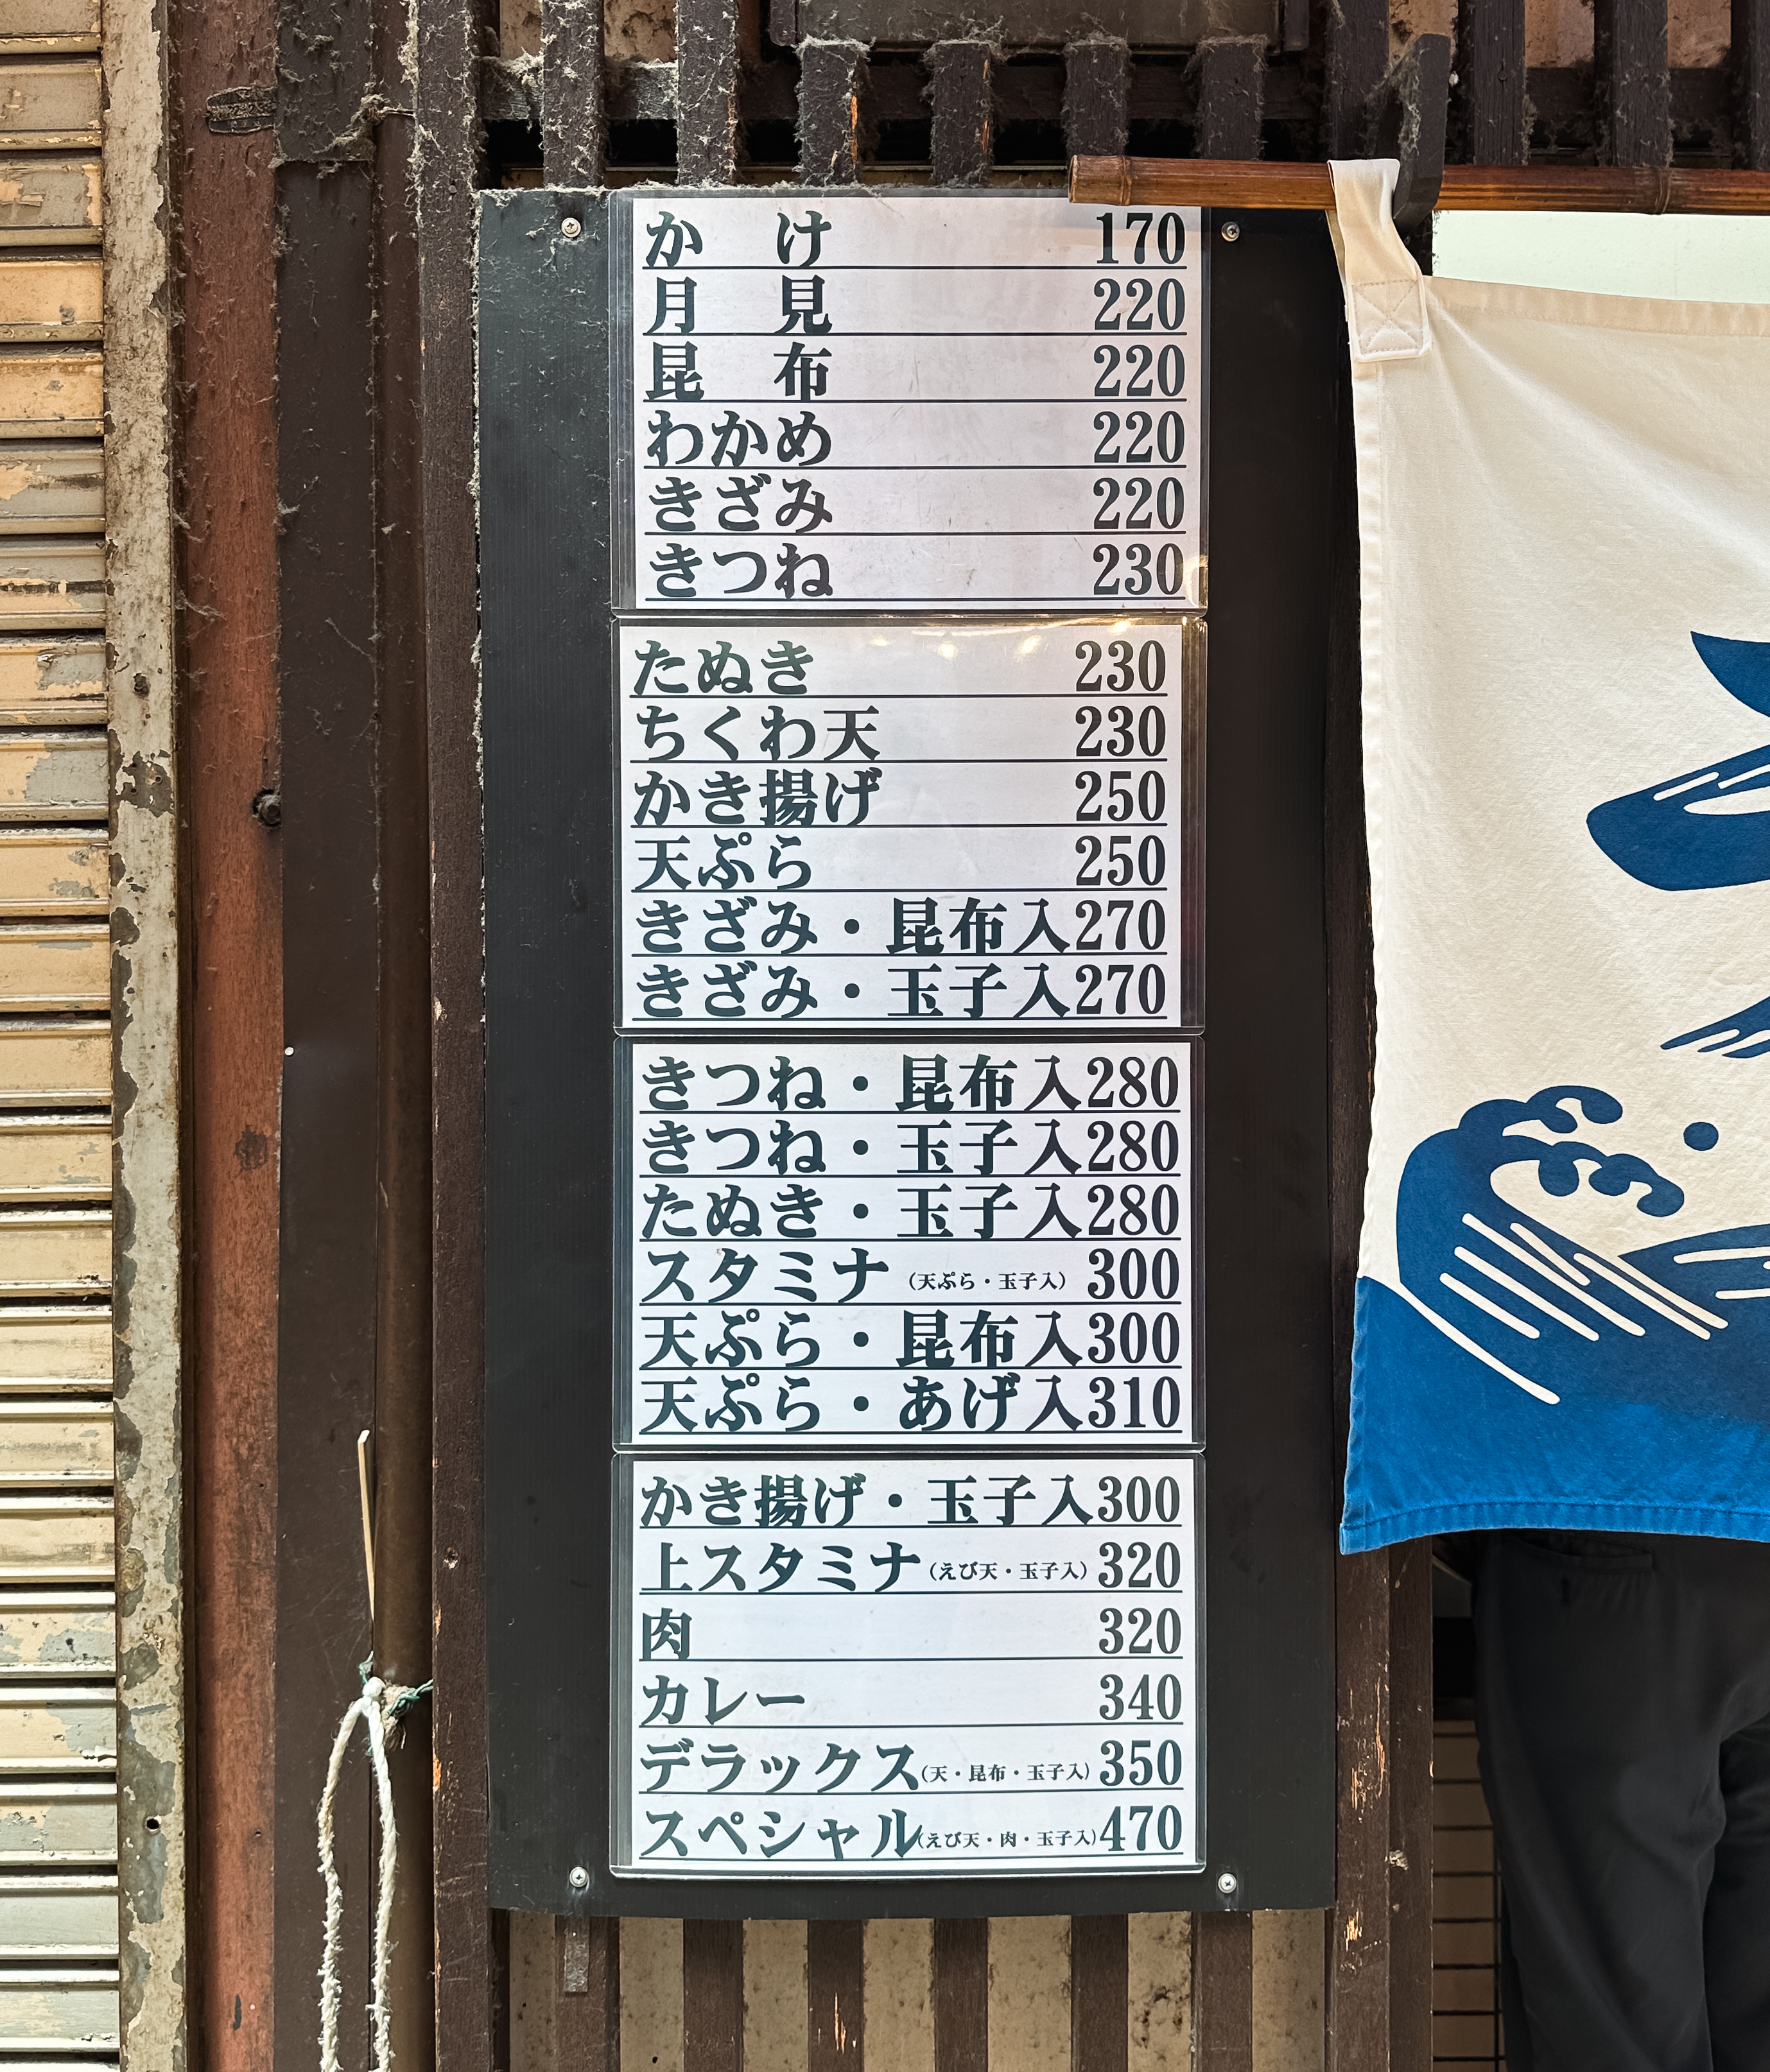 かけ 170
月見 220
昆布 220
わかめ 220
きざみ 220
きつね 230
たぬき 230
ちくわ天 230
かき揚げ 250
天ぷら 250
きざみ・昆布入270
きざみ・玉子入270
きつね・昆布入280
きつね・玉子入280
たぬき・玉子入280
スタミナ（天ぷら・玉子入）300
天ぷら・昆布入300
天ぷら・あげ入310
かき揚げ・玉子入300
上スタミナ（えび天・玉子入）320
肉 320
カレー 340
デラックス（天・昆布・玉子入）350
スペシャル（えび天・肉・玉子入）470